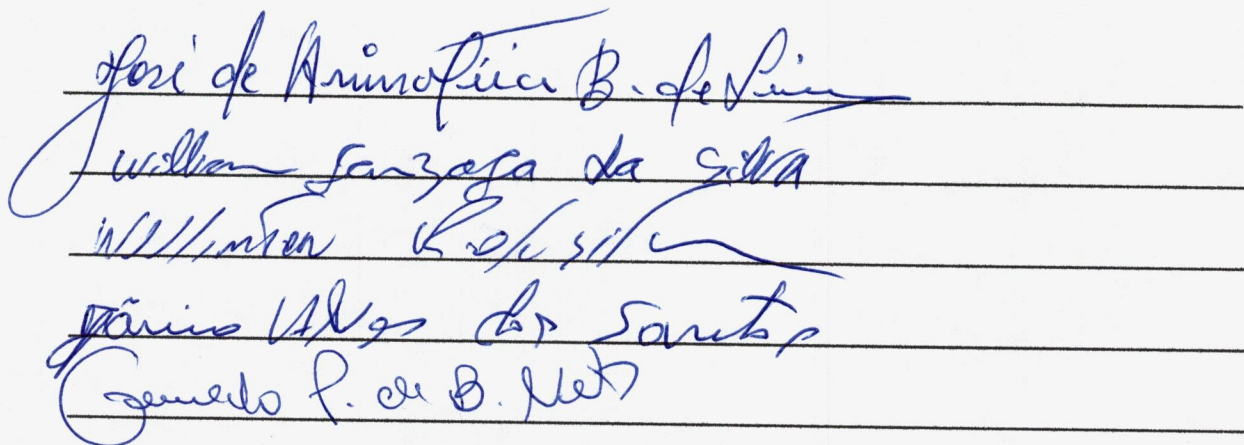 José de Arimatéia B. de Lima
Willian Gonzaga da Silva
da Silva
Alves dos Santos
Geraldo P. de B. Neto